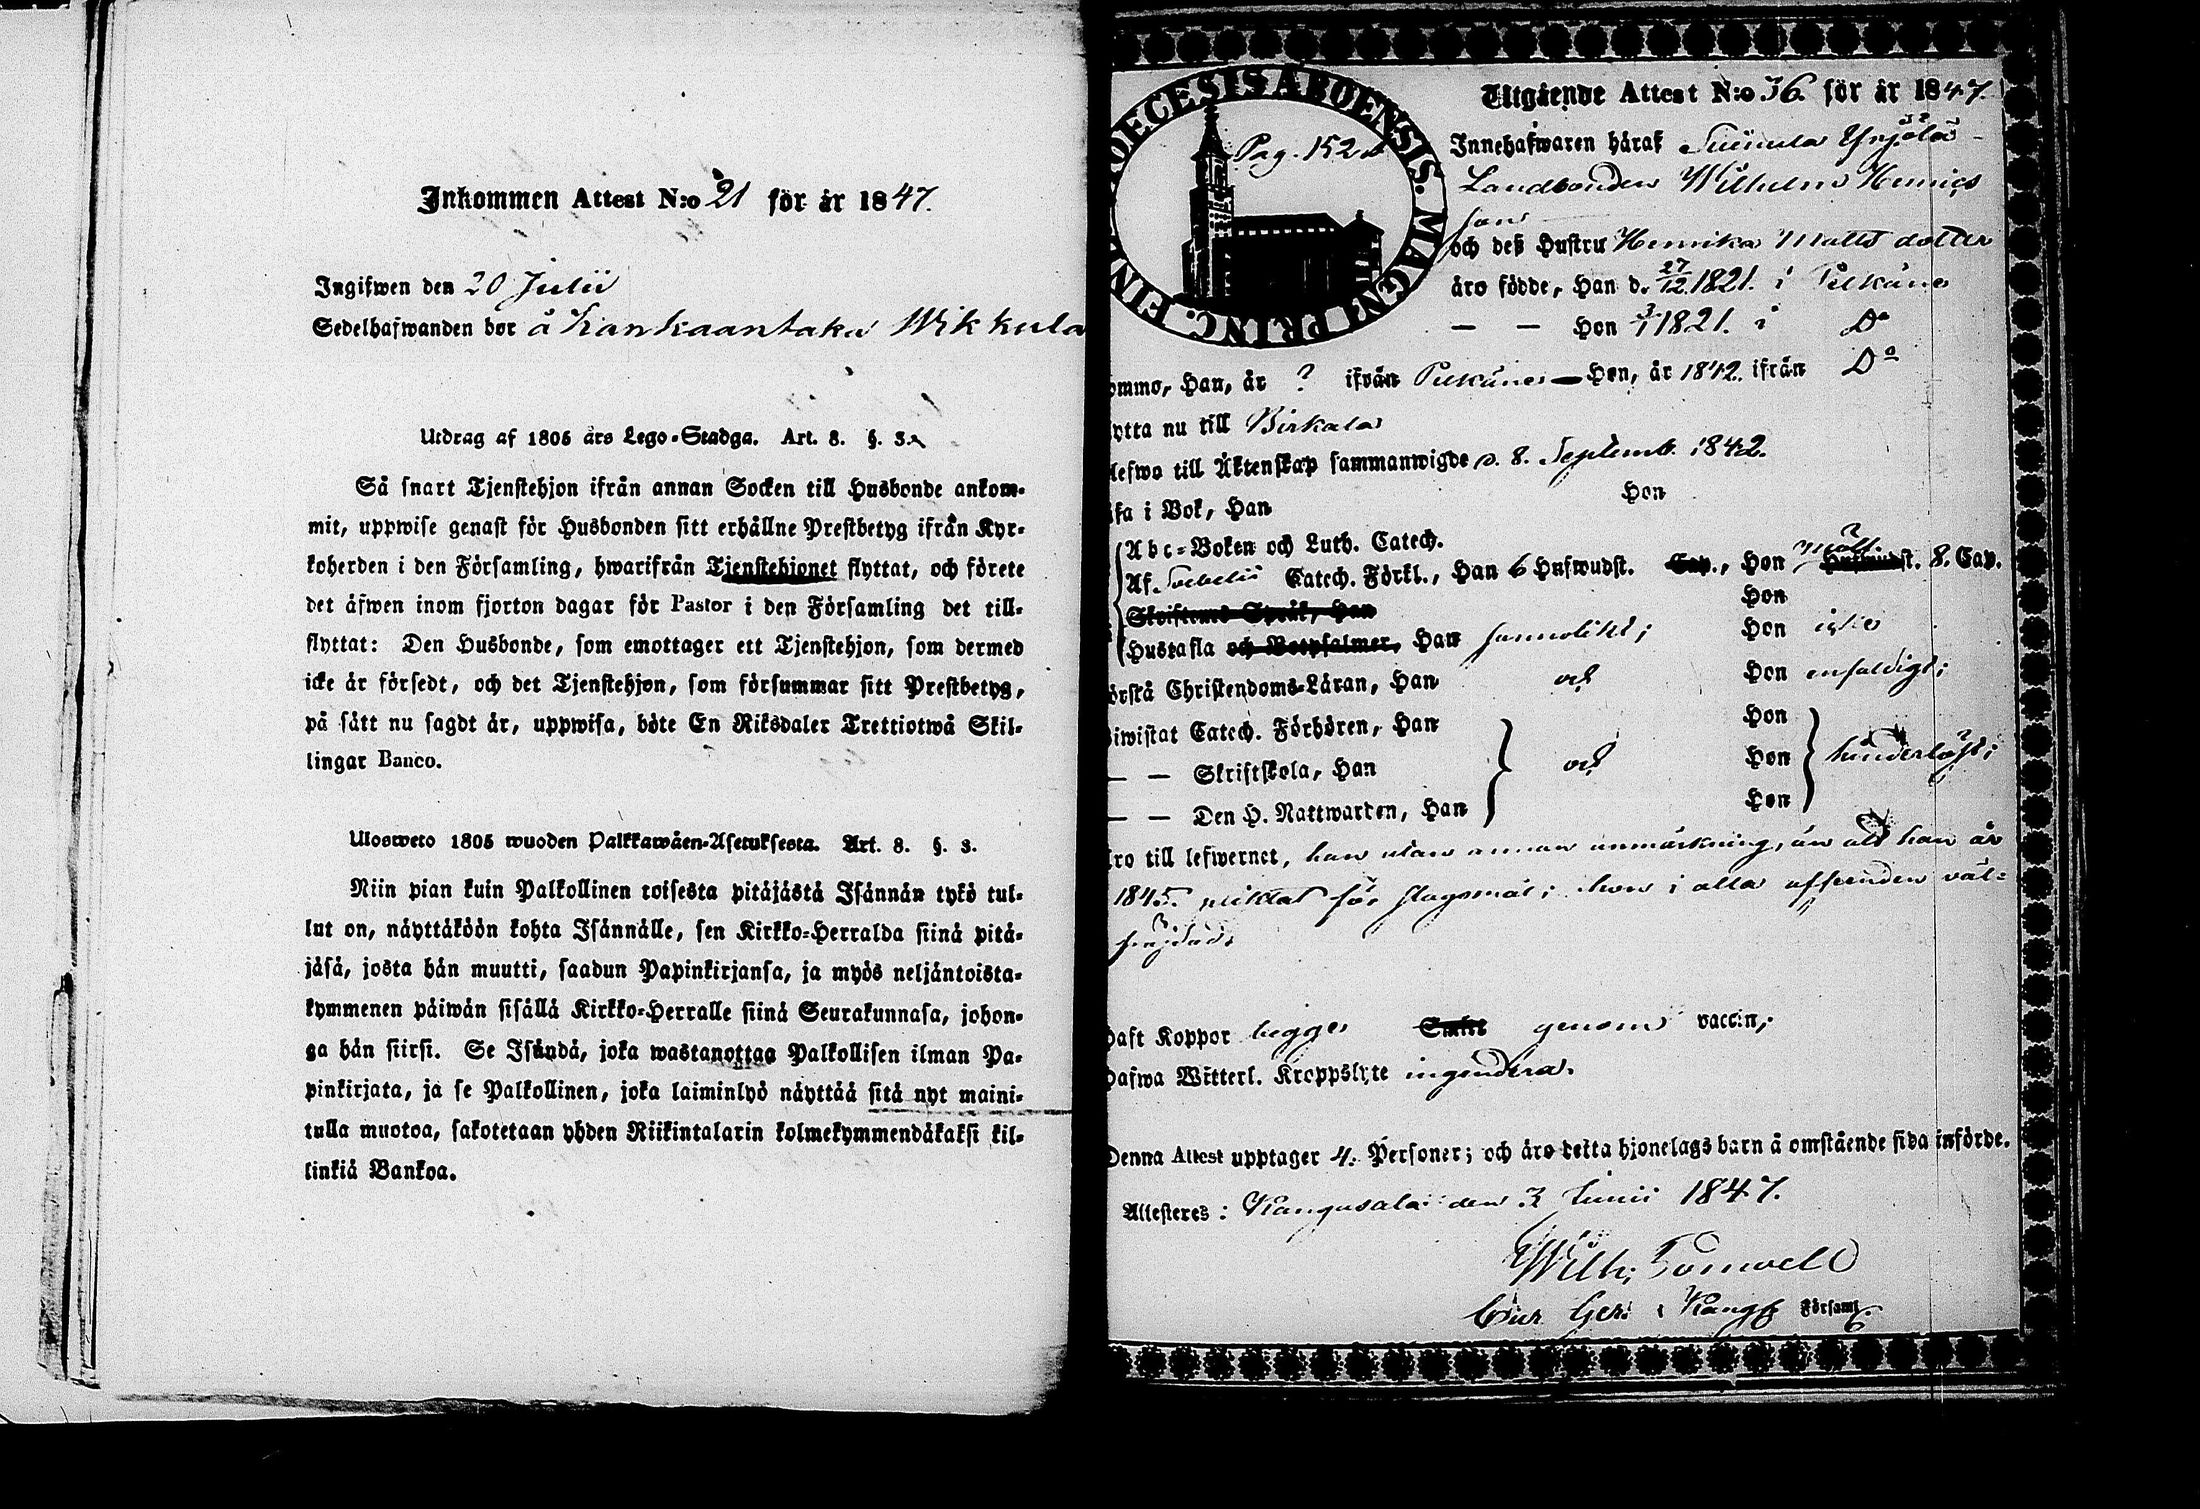 Inkommen Attest N:o 21 för år 1847.
Ingifwen den 20 Julii
Sedelhafwanden bor å Kankaantaka Wikkula
Utdrag af 1805 års Lego-Stadga. Art. 8. §. 3.
Så snart Tjenstehjon ifrån annan Socken till Husbonde ankom-
mit, uppwise genast för Husbonden sitt erhållne Prestbetyg ifrån Kyr-
koherden i den Församling, hwarifrån Tjenstehionet flyttat, och förete
det äfwen inom fjorton dagar för Pastor i den Församling det till-
flyttat: Den Husbonde, som emottager ett Tjenstehjon, som dermed
icke är försedt, och det Tjenstehjon, som försummar sitt Prestbetyg,
på sätt nu sagdt är, uppwisa, böte En Riksdaler Trettiotwå Skil-
lingar Banco.
Ulosweto 1805 wuoden Palkkawäen-Asetuksesta. Art. 8. §. 3.
Niin pian kuin Palkollinen toisesta pitäjästä Isännän tykö tul-
lut on, näyttäköön kohta Isännälle, sen Kirkko-Herralda siinä pitä-
jäsä, josta hän muutti, saadun Papinkirjansa, ja myös neljäntoista-
kymmenen päiwän sisällä Kirkko-Herralle siinä Seurakunnasa, johon-
ga hän siirsi. Se Isändä, joka wastanottaa Palkollisen ilman Pa-
pinkirjata, ja se Palkollinen, joka laiminlyö näyttää sitä nyt maini-
tulla muotoa, sakotetaan yhden Riikintalarin kolmekymmendäkaksi kil-
linkiä Bankoa.
OECESIS ABOENSIS. MAGNI PRINC. FIN
Pag. 152
Utgående Attest N:o 36. för år 1847.
Innehafwaren häraf Yrjölä
Landbonden Wilhelm Henrics
son
och deß Hustru Henrika Matts dotter
äro födde, Han d. 27/12 1821. i Pelkäne
— — Hon 3/1 1821. i Do
ommo, Han, år ? ifrån Pelkäne — Hon, år 1842. ifrån Do
ytta nu till Birkala
lefwa till Äktenskap sammanwigde d. 8. Septemb. 1842.
äsa i Bok, Han Hon
Abc-Boken och Luth. Catech.
Af. Catech. Förkl., Han 6 Hufwudst. Cap., Hon Hufwudst. 8. Cap.
Skriftens Språk, Han Hon
Hustafla och Botpsalmer, Han sannolikt; Hon icke
örstå Christendoms-Läran, Han och Hon enfaldigt;
iwistat Catech. Förhören, Han Hon
— — Skriftskola, Han och Hon hinderlöst;
— — Den H. Nattwarden, Han Hon
ro till lefwernet, han utan annan anmärkning, än att han är
1845. pliktat för slagsmål; hon i alla afseenden väl-
fräjdad.
haft Koppor begge Smitt genom vaccin;
hafwa Witterl. Kroppslyte ingendera.
Denna Attest upptager 4. Personer; och äro detta hjonelags barn å omstående sida införde.
Attesteres: Kangasala den 3 Junii 1847.
Wilh.
i Kang. Församl.